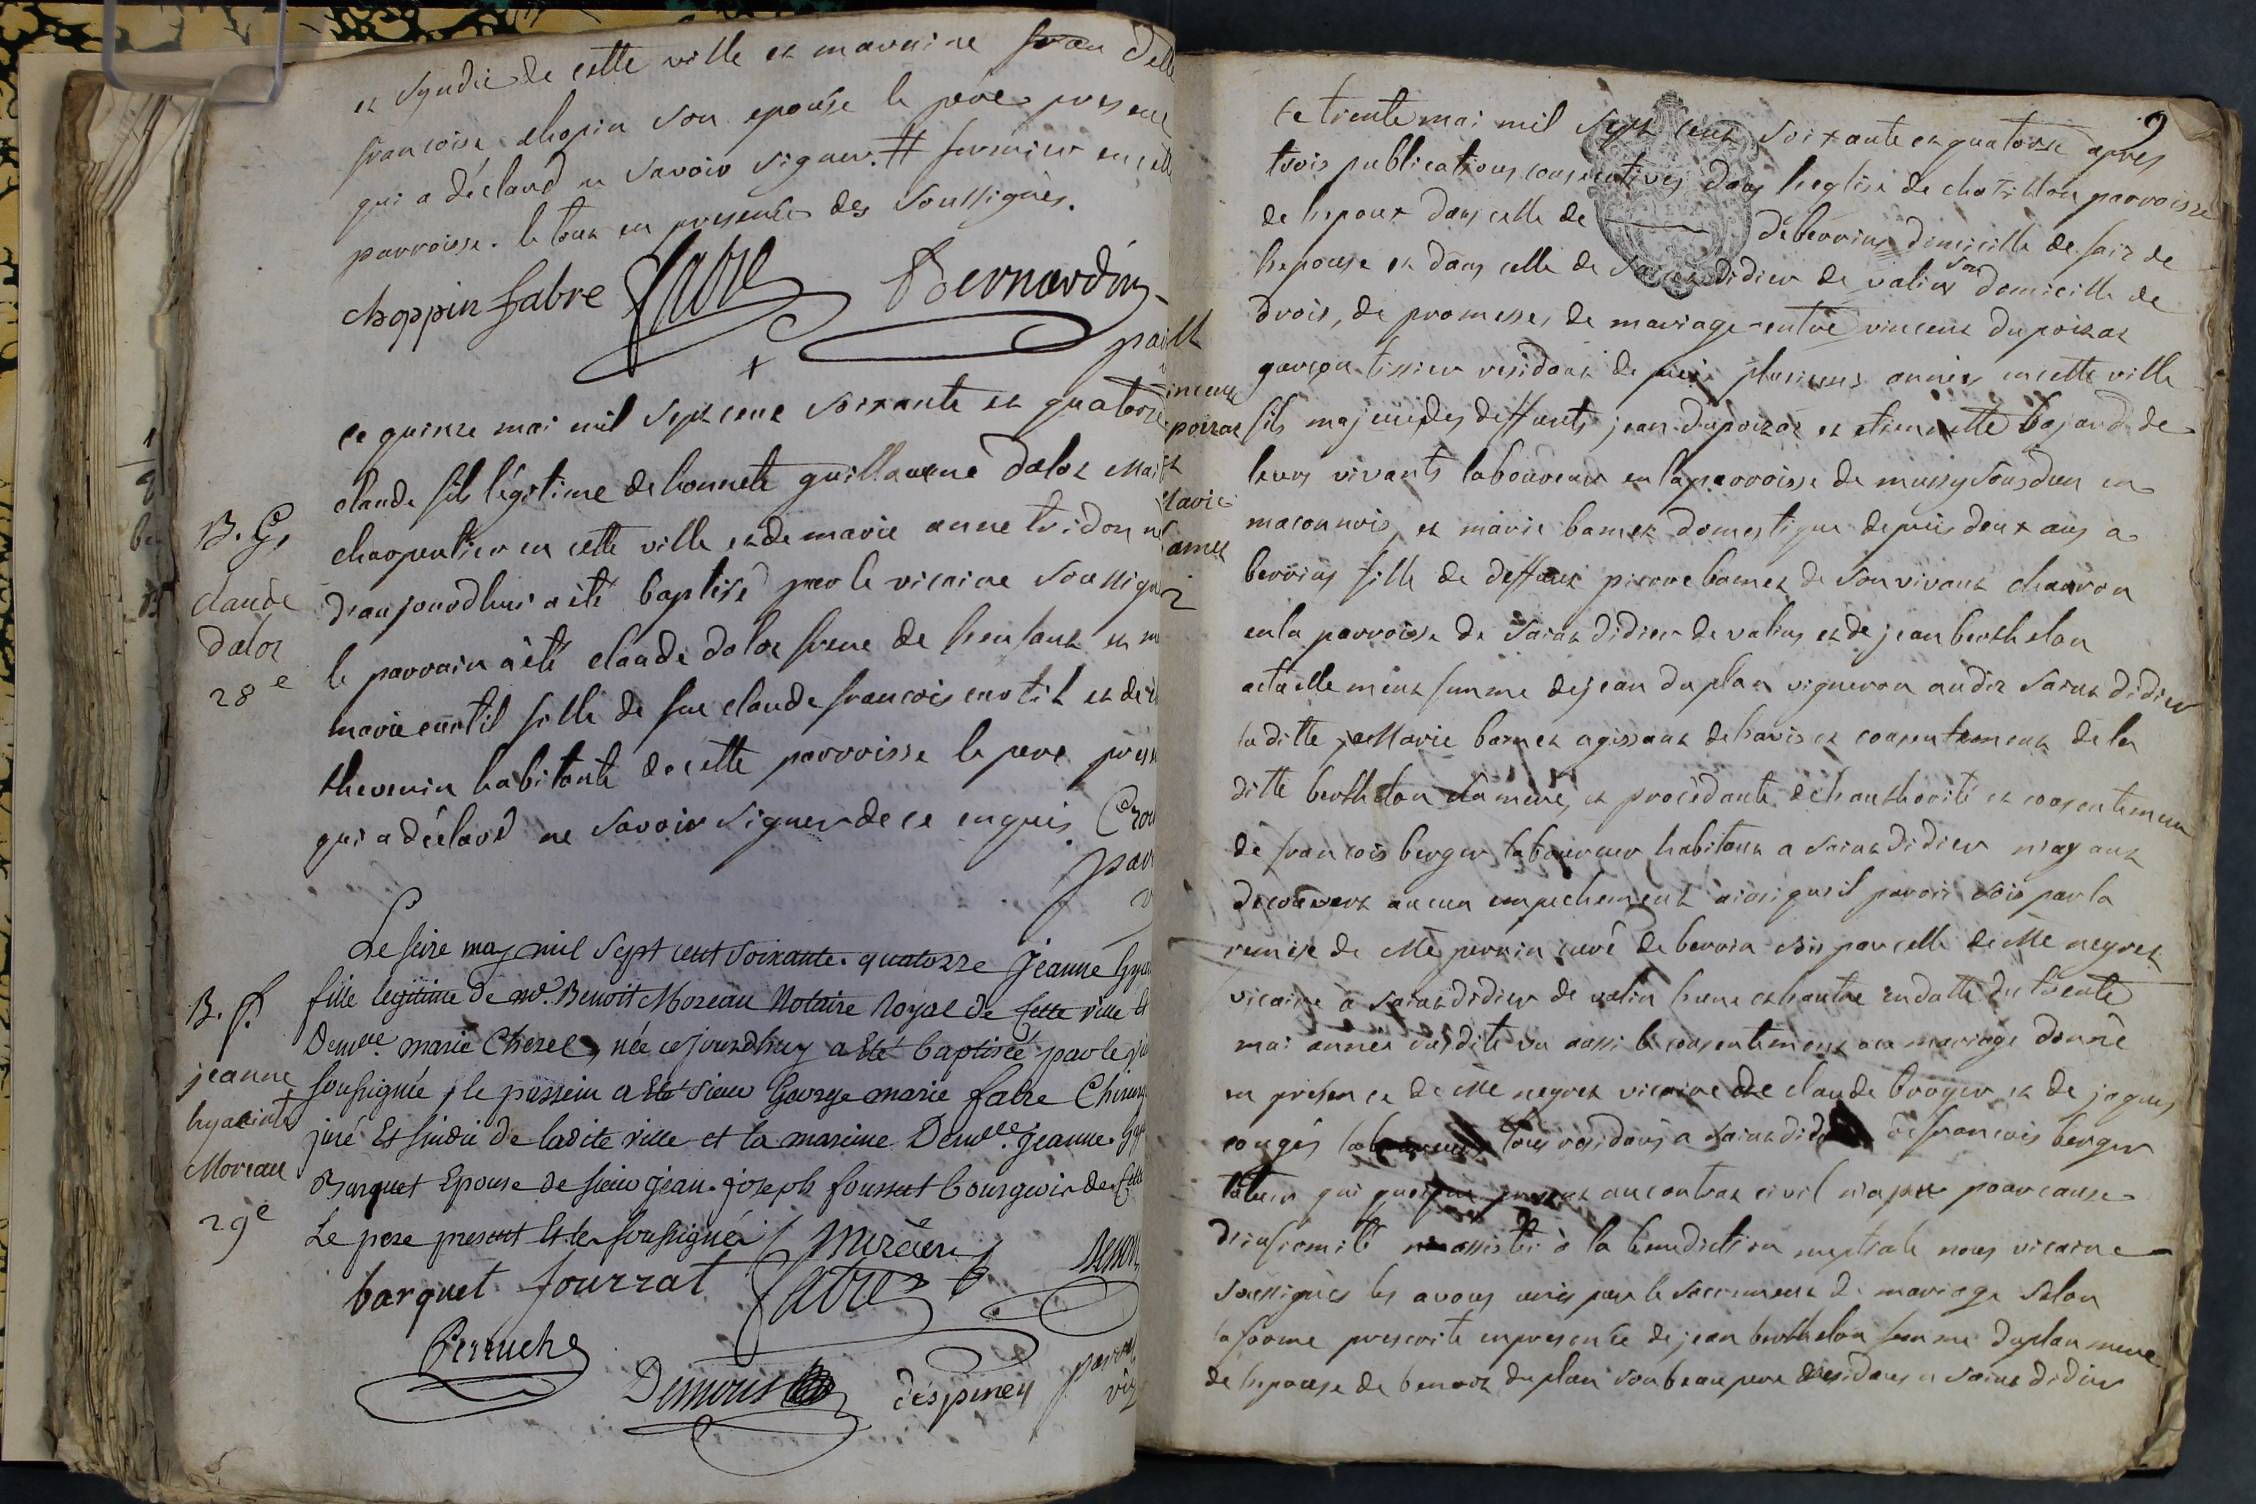 et syndic de cette ville et maraine
francoise chopin son epouse le pere present
qui a déclaré ne savoir signer. # fermier en cette
parroisse. le tout en presence des soussignès.
choppin fabre fabre Bernardin
ce quinze mai mil sept cent soixante et quatorze
claude fils légitime de honnete guillaume dalos
charpentier en cette ville et de marie anne tridon
d'aujourdhui a été baptisé par le vicaire soussigné
le parrain a été claude dalos frere de l'enfant et
marie curtil fille de feu claude francois curtil et de
thevenin habitante de cette parroisse le pere
qui a déclaré ne savoir signer de ce enquis
B. G.
claude
dalos
28e
Le seize may mil sept cent soixante-quatorze jeanne
fille legitime de me. Benoit Moreau Notaire Royal de cette ville et
Demlle. marie Cherel, née cejourdhuy a Eté baptisée par le
soussignée, le parrein a Eté sieur George marie fabre
juré Et sindic de ladite ville et la mareine Demlle. jeanne
Barquet Epouse de sieur jean-joseph fourrat bourgeois de cette
Le pere present Et les soussignés / moreau
B. f.
jeanne
hyacinte
Moreau
29e
barquet fourrat fabre
Perruche
Demoust despiney
2
ce trente mai mil sept cent soixante et quatorze apres
trois publications consecutives dans l'eglise de chatillon parroisse
de lepoux dans celle de deberrins domicille de fait de
lepouse et dans celle de saint didier de valins son domicille de
droit, de promesses de mariage entre vincent dupoizat
garcon tissier residant depuis plusieurs années en cette ville
fils majeur des deffunts jean dupoizat et etiennette bajard de
leurs vivants laboureur en la parroisse de mussy sous dun en
maconnois, et marie bamet domestique depuis deux ans a
berrins fille de deffunt pierre bamet de son vivant charron
en la parroisse de saint didier de valins et de jean berthelon
actuellement femme de jean duplan vigneron audit saint didier
la ditte marie bamet agissant de l'avis et consentement de la
ditte berthelon sa mere, et procédante de l'authorité et consentement
de francois berger laboureur habitant a saint didier n'ayant
decouvert aucun empechement ainsi qu'il paroit soit par la
remise de Me perrin curé de berrin soit par celle de Me negret
vicaire a saint didier de valin l'une et l'autre en datte du trente
mai année susdite vu aussi le consentement au mariage donné
en presence de Me negret vicaire de claude broyer et de jaques
congés tous residans a saint didier de francois berger
tuteur qui quoique present au contrat civil n'a pu pour cause
d'infirmité assister à la benediction nuptiale nous vicaire
soussignés les avons unis par le sacrement de mariage selon
la forme prescrite en presence de jean berthelon femme duplan mere
de lepouse de benoit duplan son beau pere residans a saint didier